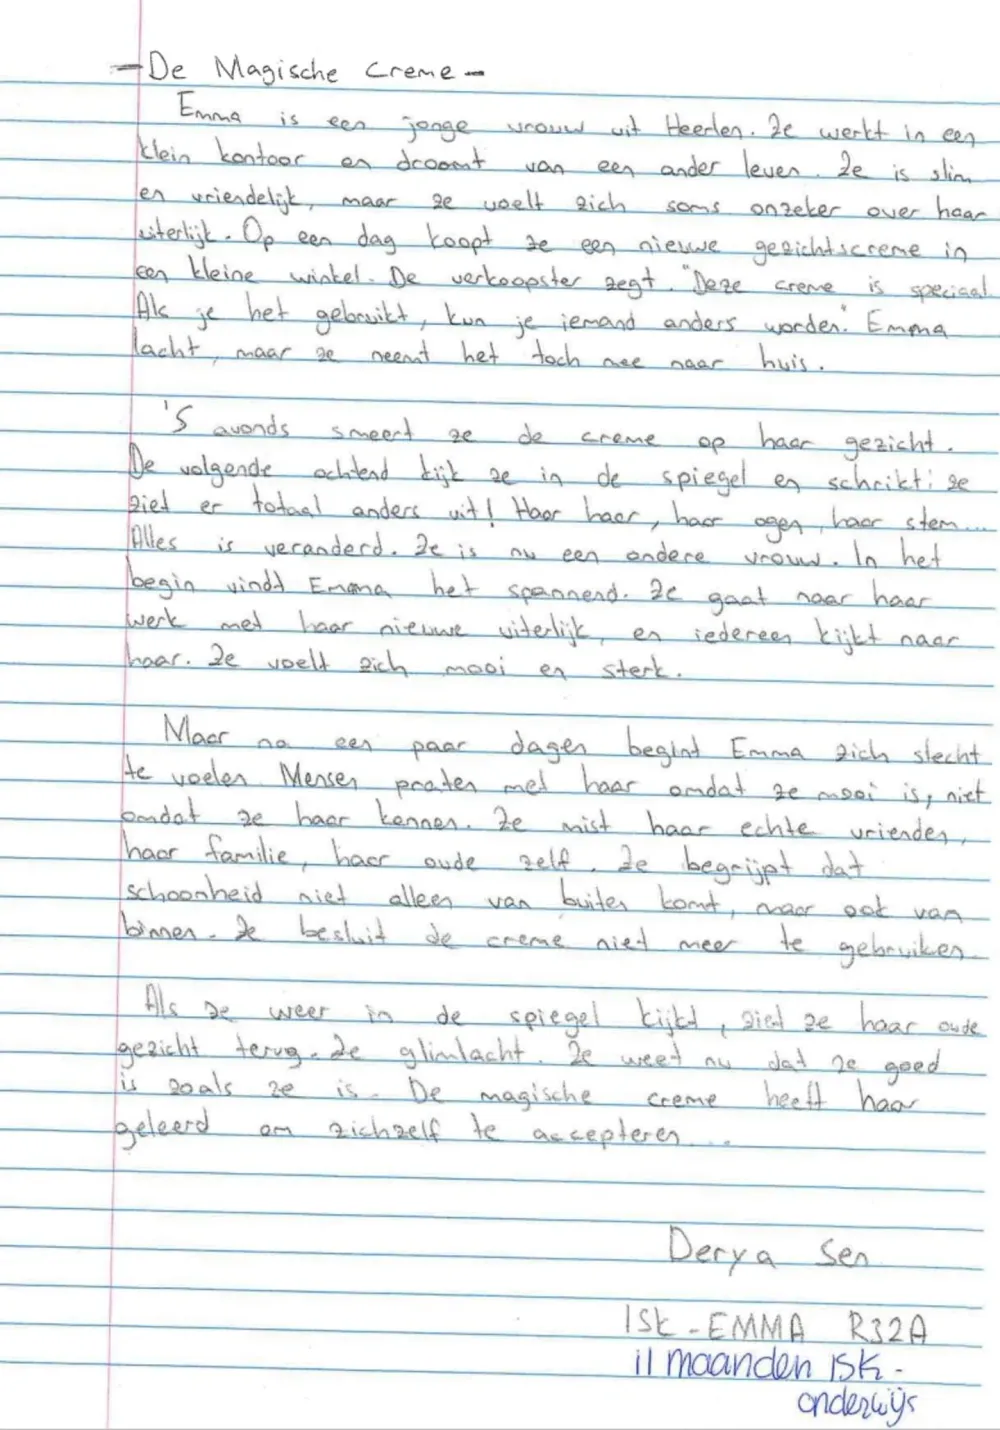 - De Magische Creme -
Emma is een jonge vrouw uit Heerlen. Ze werkt in een
klein kontoor en droomt van een ander leven. Ze is slim
en vriendelijk, maar ze voelt zich soms onzeker over haar
uiterlijk. Op een dag koopt ze een nieuwe gezichtscreme in
een kleine winkel. De verkoopster zegt. "Deze creme is speciaal
Als je het gebruikt, kun je iemand anders worden." Emma
lacht, maar ze neemt het toch mee naar huis.
'S avonds smeert ze de creme op haar gezicht.
De volgende ochtend kijk ze in de spiegel en schrikt: ze
ziet er totaal anders uit! Haar haar, haar ogen, haar stem...
Alles is veranderd. Ze is nu een andere vrouw. In het
begin vindt Emma het spannend. Ze gaat naar haar
werk met haar nieuwe uiterlijk, en iedereen kijkt naar
haar. Ze voelt zich mooi en sterk.
Maar na een paar dagen begint Emma zich slecht
te voelen. Mensen praten met haar omdat ze mooi is, niet
omdat ze haar kennen. Ze mist haar echte vrienden,
haar familie, haar oude zelf. Ze begrijpt dat
schoonheid niet alleen van buiten komt, maar ook van
binnen. Ze besluit de creme niet meer te gebruiken.
Als ze weer in de spiegel kijkt, ziet ze haar oude
gezicht terug. Ze glimlacht. Ze weet nu dat ze goed
is zoals ze is. De magische creme heeft haar
geleerd om zichzelf te accepteren...
Derya Sen
ISK - EMMA R32A
11 maanden ISK-
onderwijs